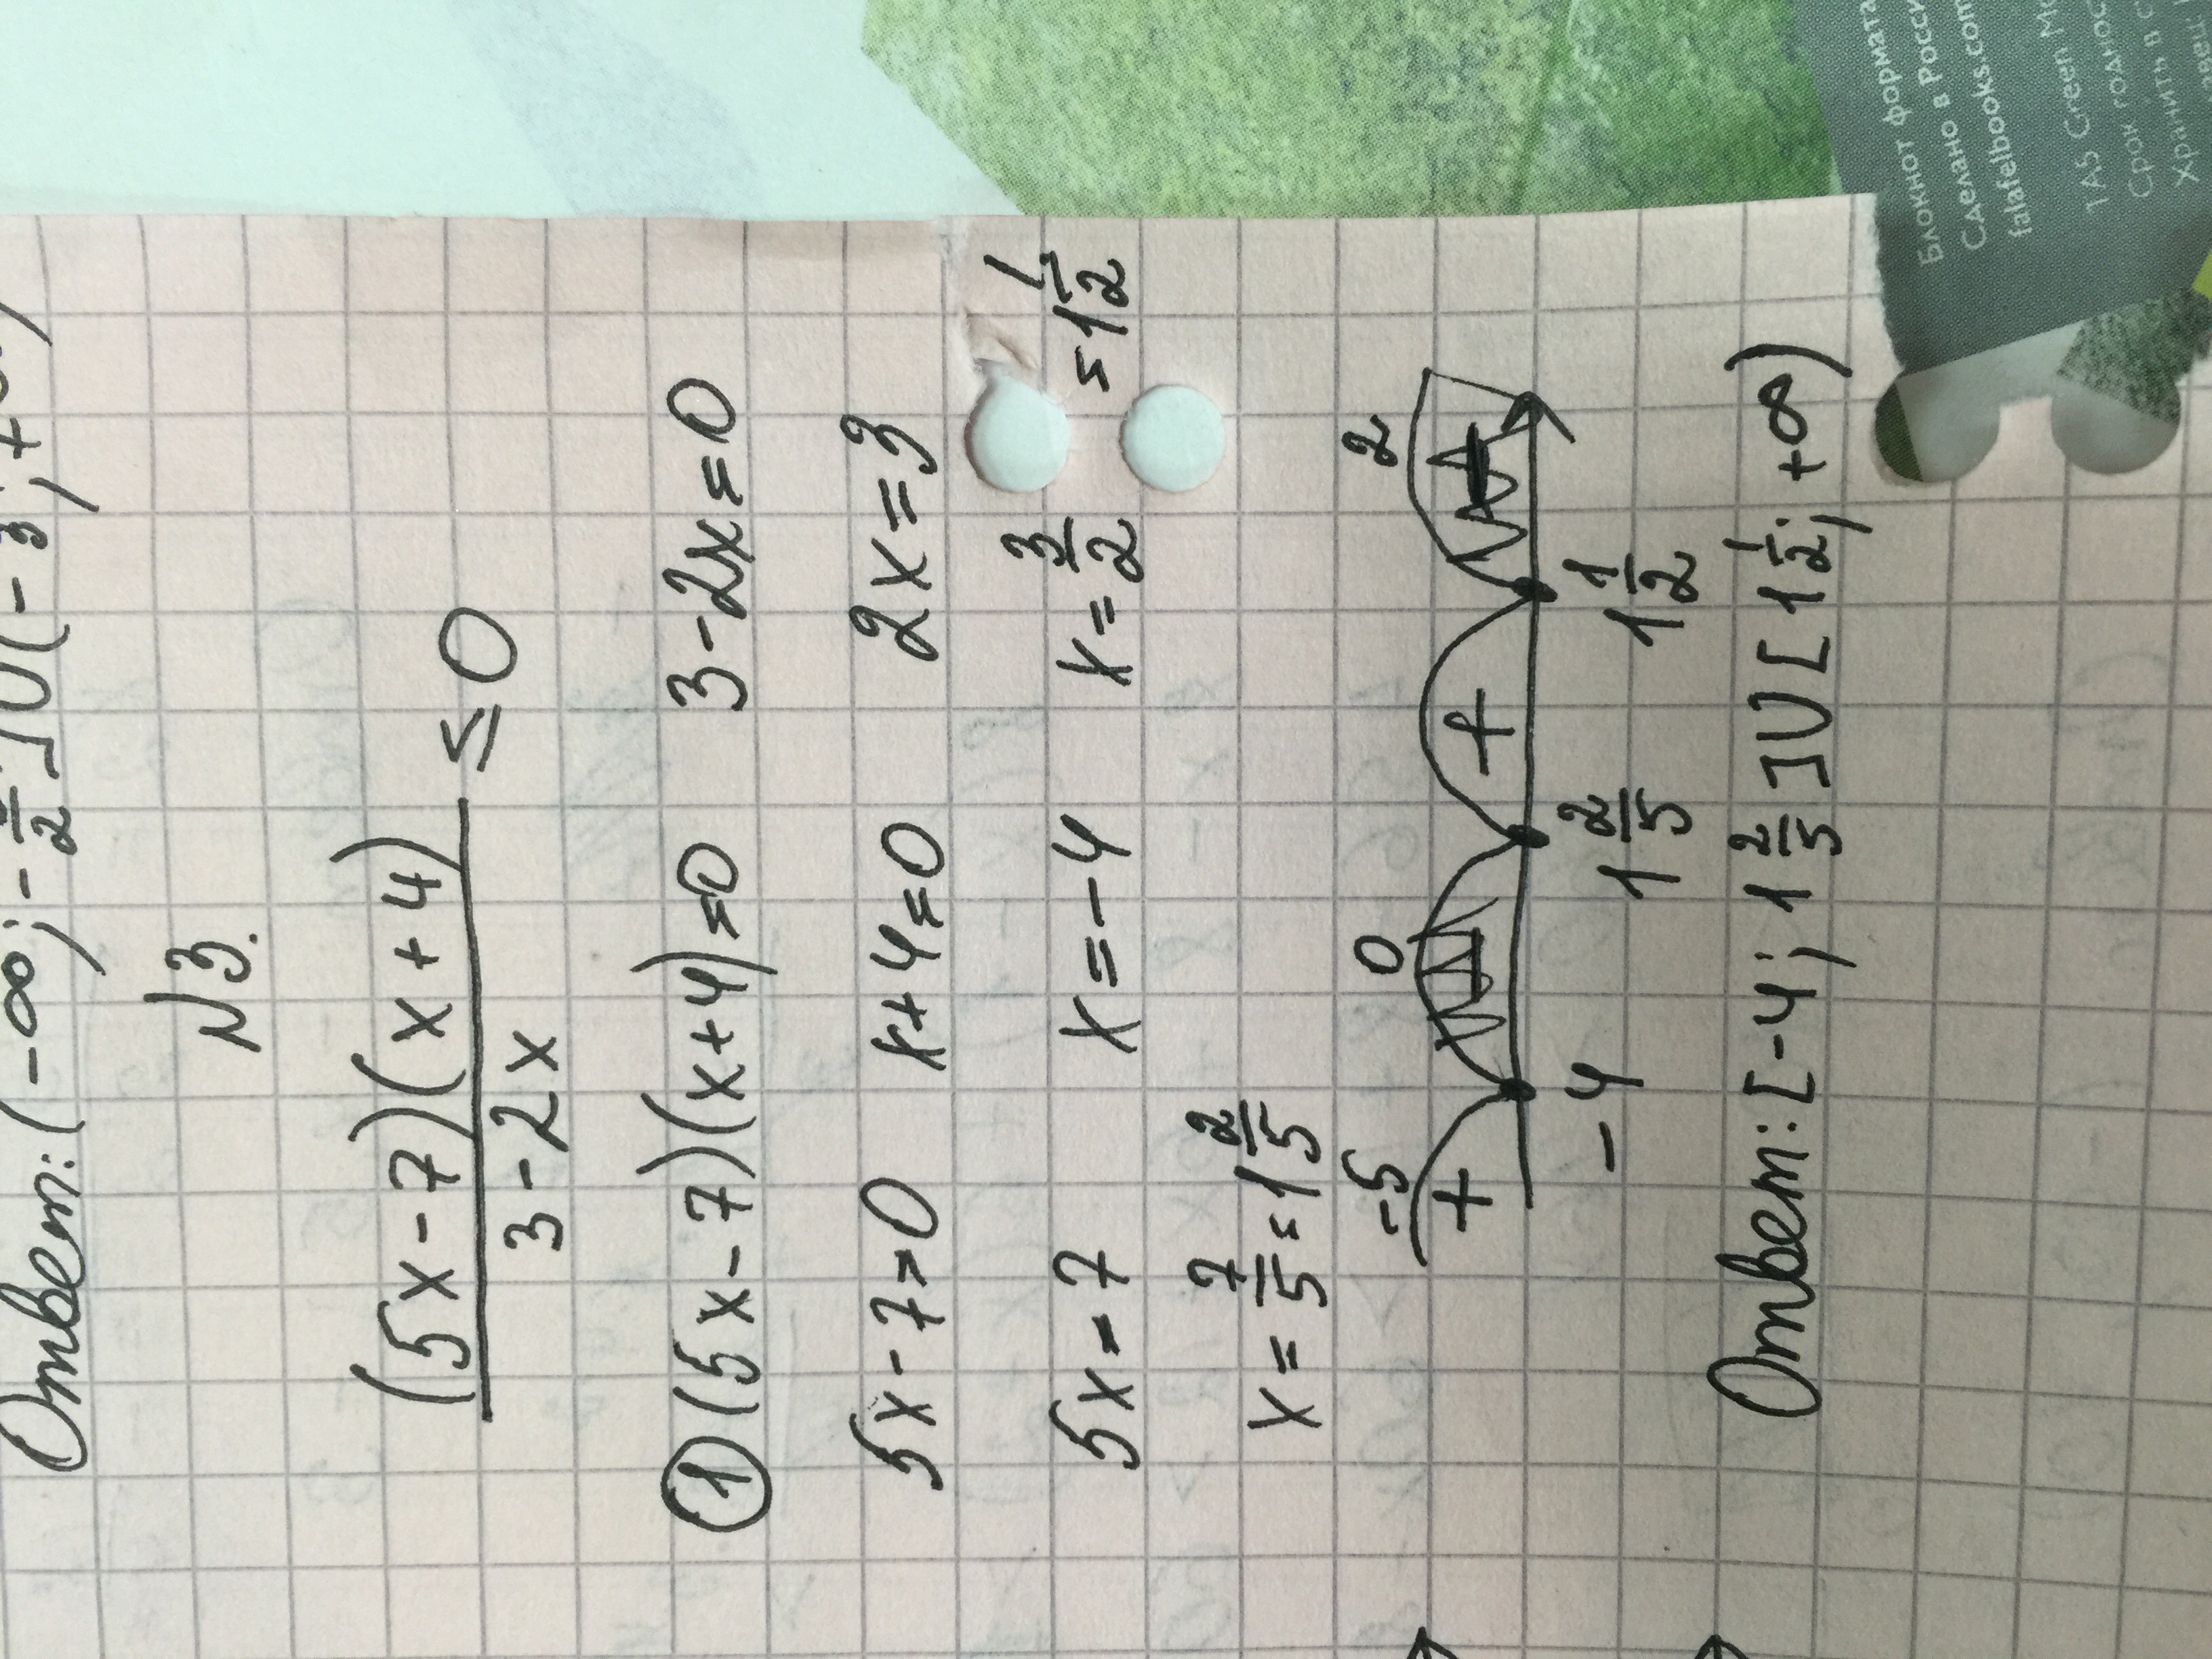 Ответ: (-∞; -1/2] U (-3; +∞)
N3.
(5x-7)(x+4)/3-2x ≤ 0
① (5x-7)(x+4)=0 3-2x=0
5x-7=0 x+4=0 2x=3
5x=7 x=-4 x=3/2 =1 1/2
x=7/5=1 2/5
-5 0 2
+ - + -
-4 1 2/5 1 1/2
Ответ: [-4; 1 2/5] U [1 1/2; +∞)
Блокнот формата
Сделано в Росси
falafelbooks.com
1A5 Green Mo
Срок годнос
Хранить в с